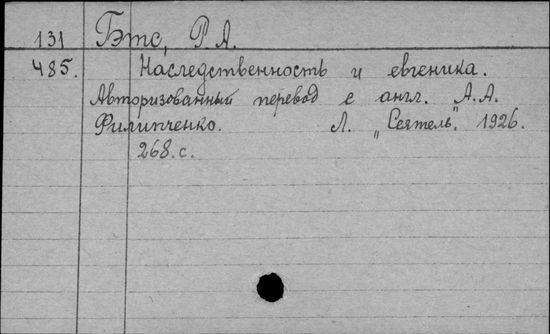 131 Бэтс, Р А.
485. Наследственность и евгеника.
Авторизованный перевод с англ. А.А.
Филипченко. Л. „Сеятель". 1926.
268.с.